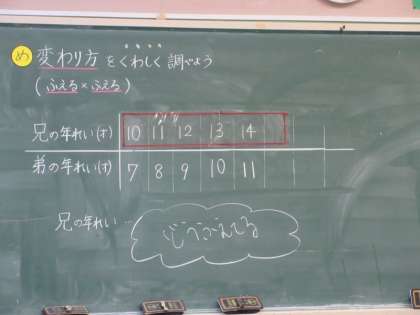 め 変わり方をくわしく調べよう
(ふえる×ふえる)
兄の年れい(才) 10 11 12 13 14
弟の年れい(才) 7 8 9 10 11
兄の年れい